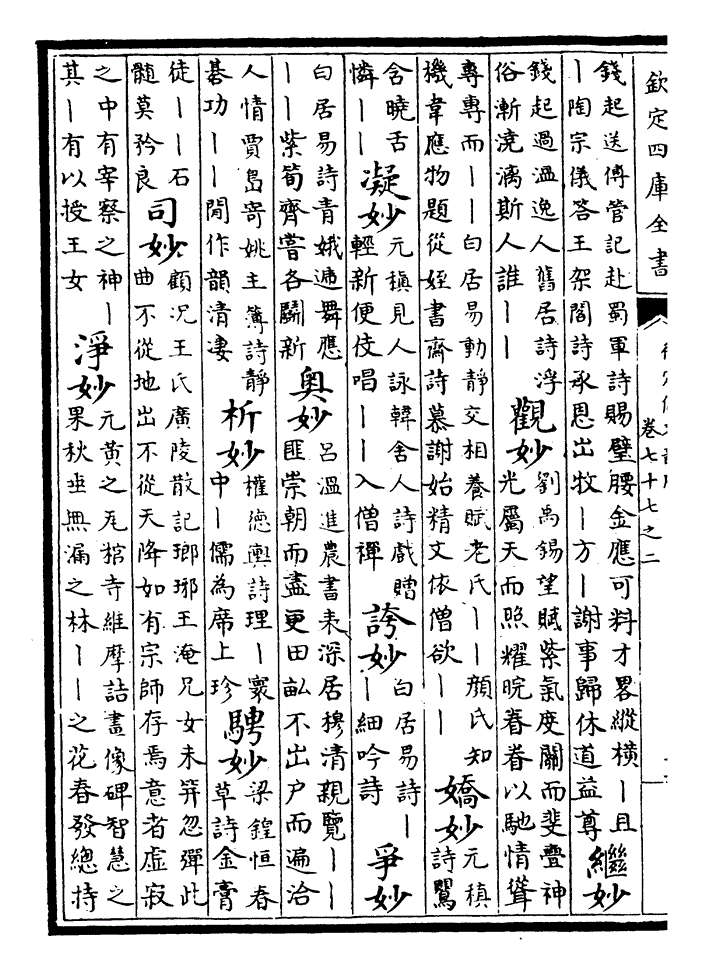 欽定四庫全書
卷七十七之二
錢起送傅管記赴蜀軍詩賜璧腰金應可料才畧縱橫丨且
丨陶宗儀答王架閣詩承恩出牧丨方丨謝事歸休道益尊
繼妙
錢起過溫逸人舊居詩浮
俗漸澆漓斯人誰丨丨
觀妙
劉禹錫望賦紫氣度關而斐亹神
光屬天而照耀睆眷眷以馳情聳
專專而丨丨白居易動靜交相養賦老氏丨丨顔氏知
機韋應物題從姪書齋詩慕謝始精文依僧欲丨丨
嬌妙
元稹
詩鶯
含曉舌
憐丨丨
凝妙
元稹見人詠韓舍人詩戲贈
輕新便伎唱丨丨入僧禪
誇妙
白居易詩丨
丨細吟詩
爭妙
白居易詩青娥遞舞應
丨丨紫筍齊嘗各鬬新
奥妙
呂溫進農書表深居穆清親覽丨丨
匪崇朝而盡更田畝不出户而遍洽
人情賈島寄姚主簿詩靜
碁功丨丨閒作韻清凄
析妙
權德輿詩理丨寰
中丨儒為席上珍
騁妙
梁鍠恒春
草詩金膏
徒丨丨石
髓莫矜良
司妙
顧況王氏廣陵散記瑯琊王淹兄女未笄忽彈此
曲不從地出不從天降如有宗師存焉意者虛寂
之中有宰察之神丨
其丨有以授王女
淨妙
元黄之瓦棺寺維摩詰畫像碑智慧之
果秋垂無漏之林丨丨之花春發總持